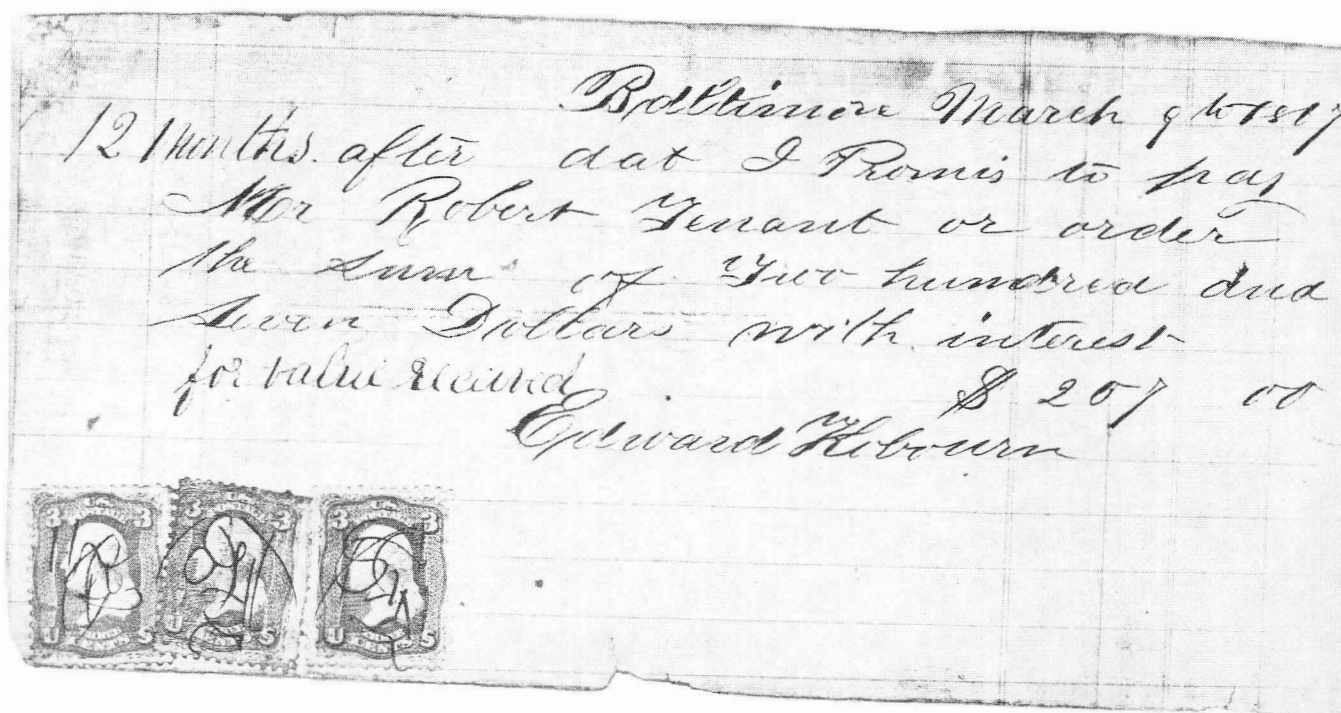 Balltimore March 9
12 Months after dat I Promis to pay
Mr Robert Tenant or order
the sum of Two hundred and
Seven Dollars with interest
for value Recived $ 207 00
Edward
3 3 3 3 3 3
U S U S U S